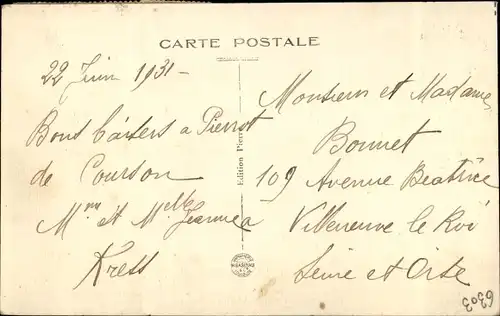 CARTE POSTALE
22 Juin 1931 -
Bons baisers a Pierrot
de Courson
Mme et Melle Jeannea
Kress
Edition Pierre
Monsieur et Madame
Bonnet
109 Avenue Beatrice
Villeneuve le Roi
Seine et Oise
6303